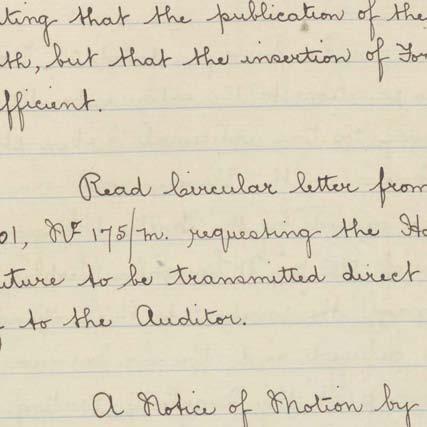 ting that the publication of the
th, but that the insertion of For
fficient.
Read Circular letter from
01, No 175/M. requesting the Ho
uture to be transmitted direct
to the Auditor.
A Notice of Motion by